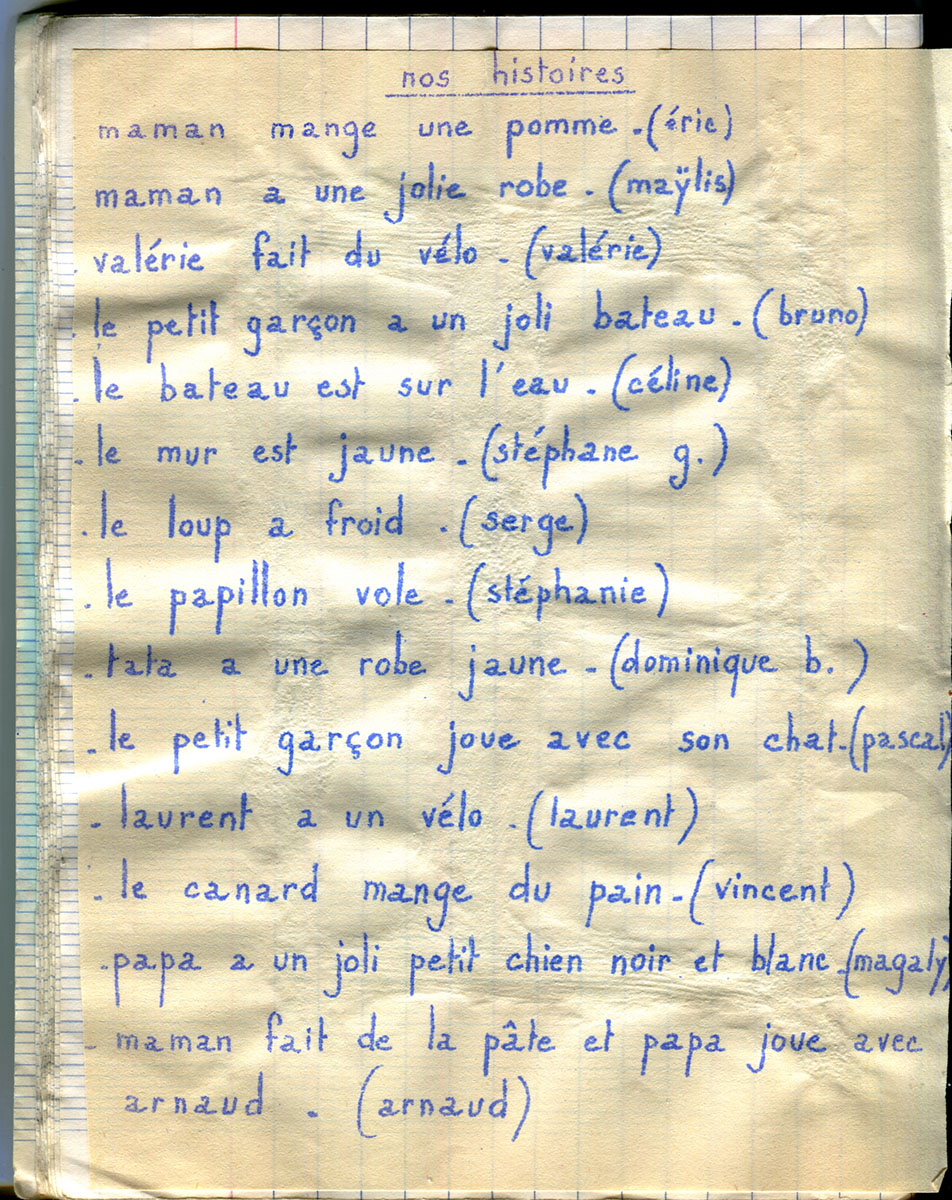 nos histoires
maman mange une pomme.(éric)
. maman a une jolie robe.(maÿlis)
. valérie fait du vélo.(valérie)
. le petit garçon a un joli bateau.(bruno)
. le bateau est sur l'eau.(céline)
. le mur est jaune.(stéphane g.)
. le loup a froid.(serge)
. le papillon vole.(stéphanie)
. tata a une robe jaune.(dominique b.)
. le petit garçon joue avec son chat.(pascal)
. laurent a un vélo.(laurent)
. le canard mange du pain.(vincent)
. papa a un joli petit chien noir et blanc.(magaly)
. maman fait de la pâte et papa joue avec
arnaud . (arnaud)